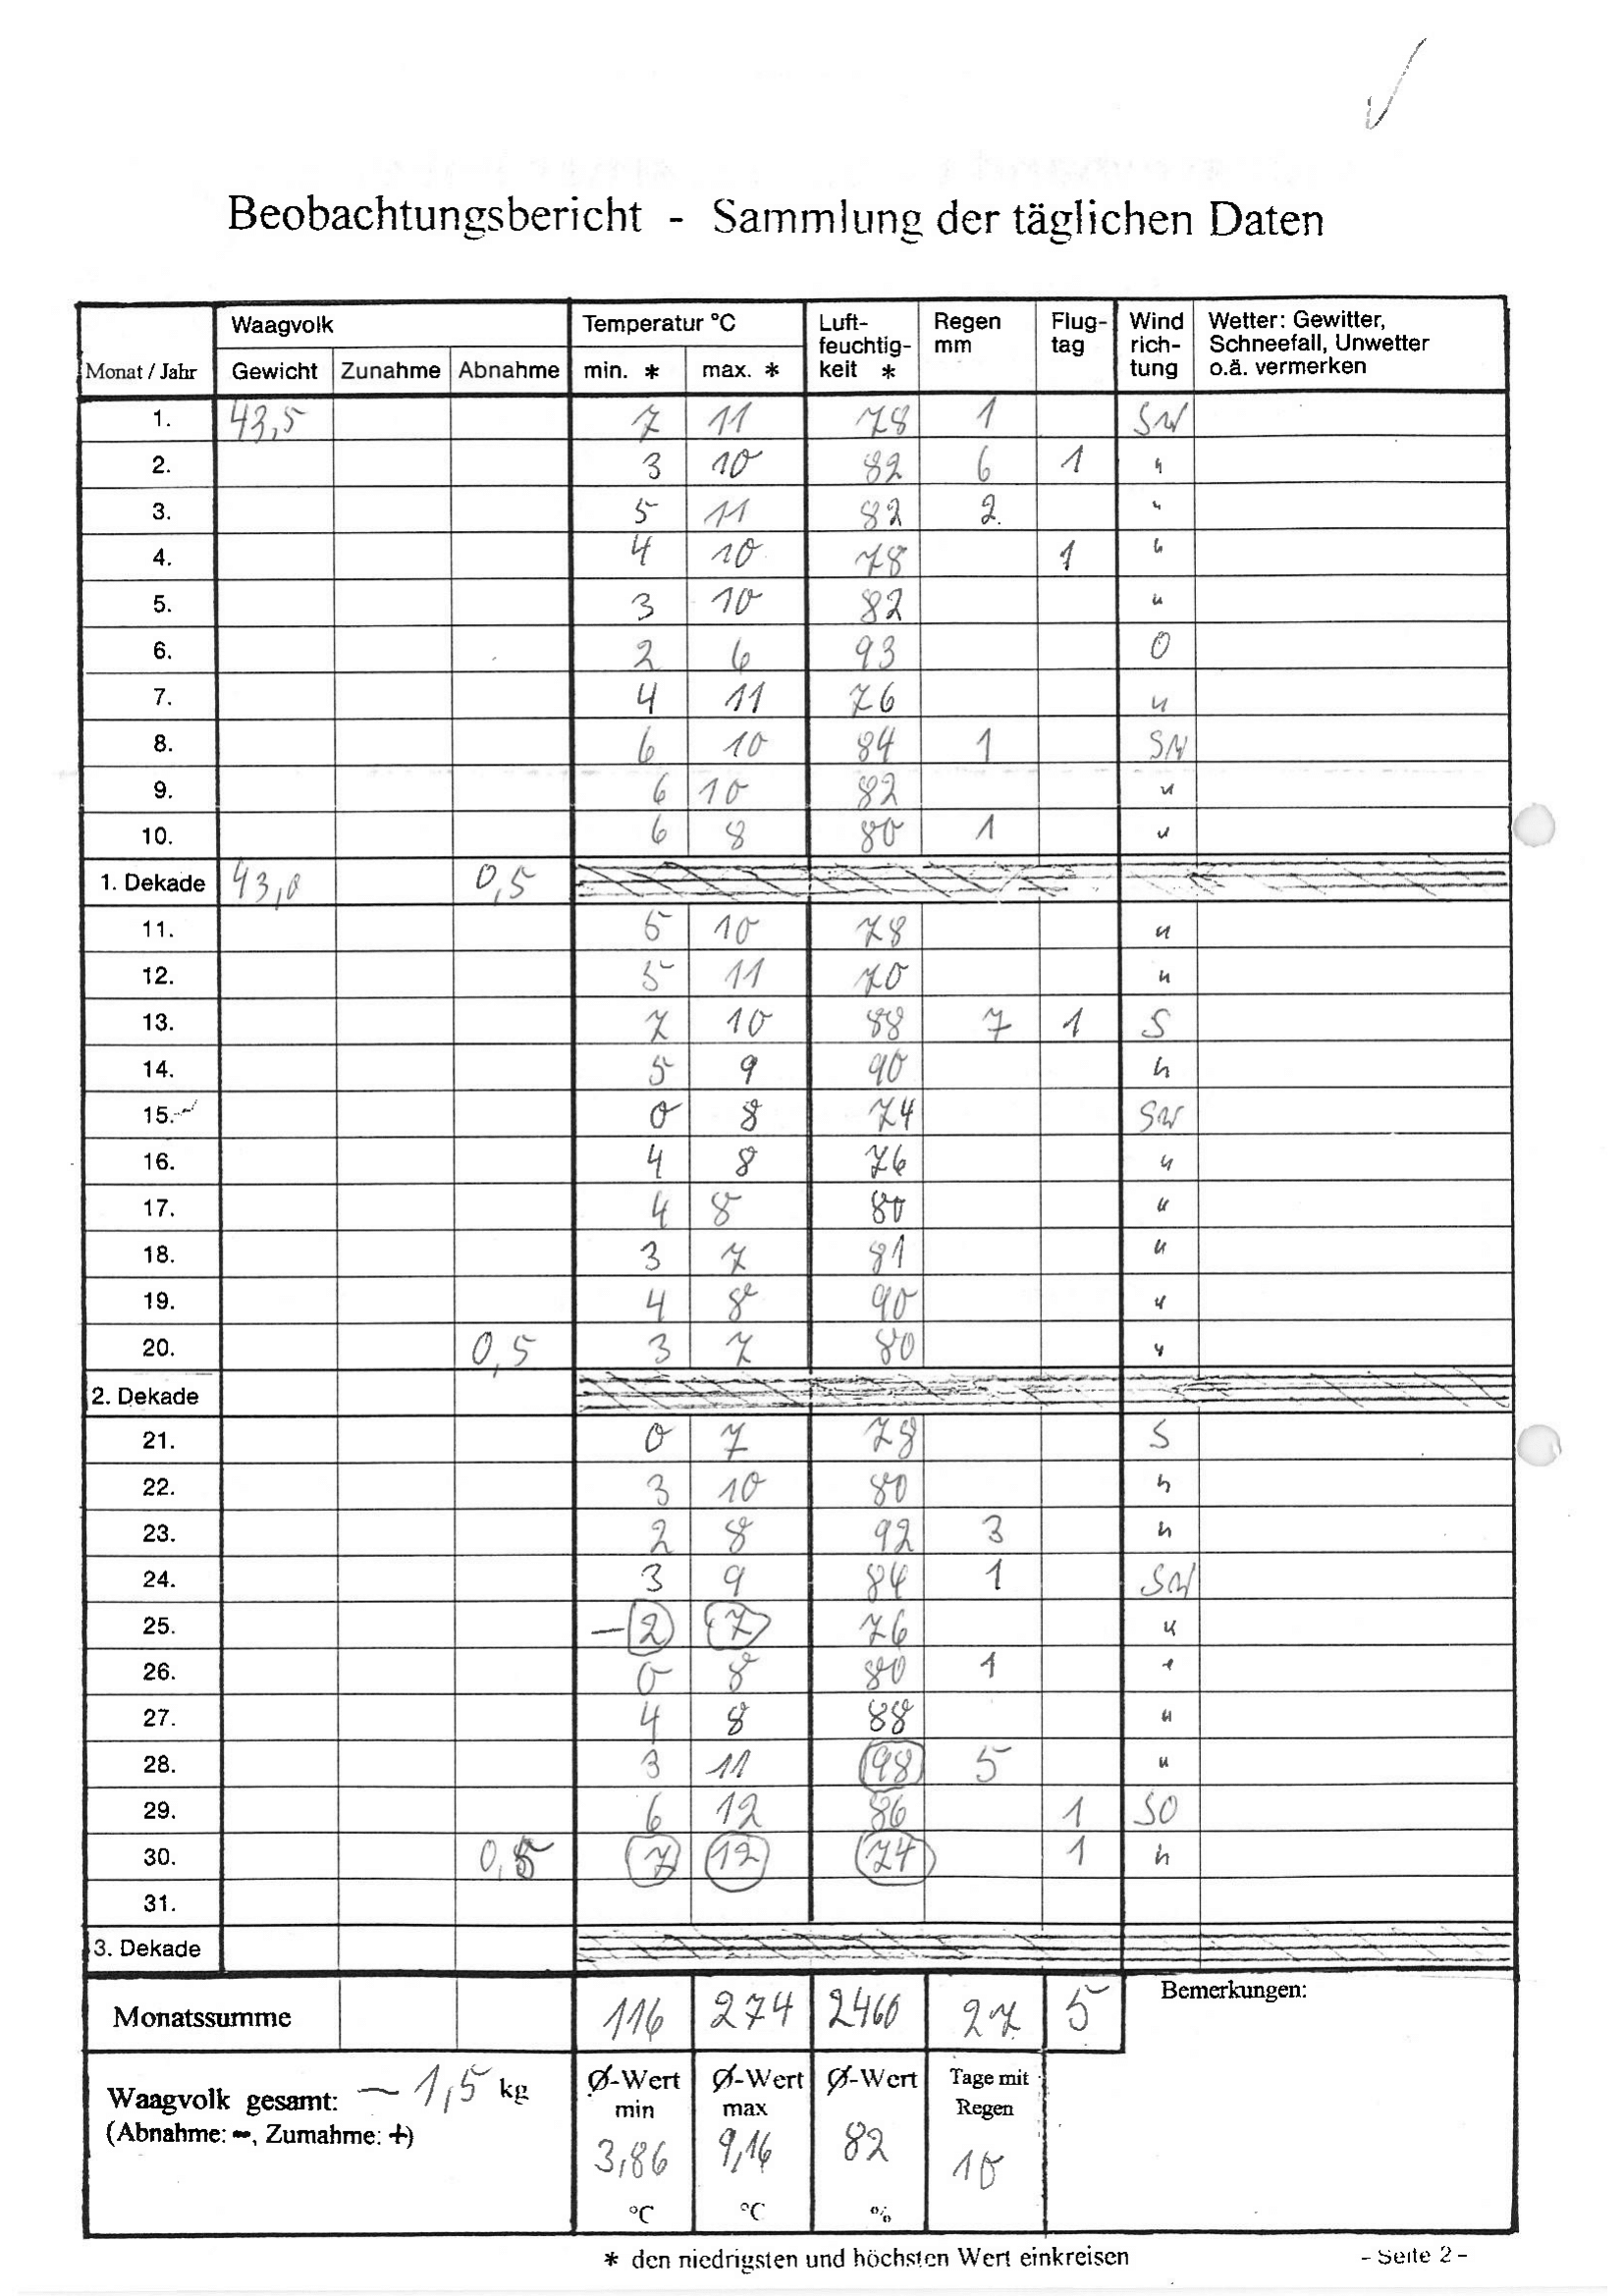 Beobachtungsbericht - Sammlung der täglichen Daten
Monat / Jahr Waagvolk Temperatur °C Luft-feuchtig-keit * Regen mm Flug-tag Wind rich-tung Wetter: Gewitter, Schneefall, Unwetter o.ä. vermerken
Gewicht Zunahme Abnahme min. * max. *
1. 43,5 7 11 78 1 SW
2. 3 10 82 6 1 "
3. 5 11 82 2 "
4. 4 10 78 1 "
5. 3 10 82 "
6. 2 6 93 O
7. 4 11 76 "
8. 6 10 84 1 SW
9. 6 10 82 "
10. 6 8 80 1 "
1. Dekade 43,0 0,5
11. 5 10 78 "
12. 5 11 70 "
13. 7 10 88 7 1 S
14. 5 9 90 "
15. 0 8 74 SW
16. 4 8 76 "
17. 4 8 80 "
18. 3 7 81 "
19. 4 8 90 "
20. 0,5 3 7 80 "
2. Dekade
21. 0 7 78 S
22. 3 10 80 "
23. 2 8 92 3 "
24. 3 9 84 1 SW
25. -2 7 76 "
26. 0 8 80 1 "
27. 4 8 88 "
28. 3 11 98 5 "
29. 6 12 86 1 SO
30. 0,5 7 12 74 1 "
31.
3. Dekade
Monatssumme 116 274 2460 27 5
Bemerkungen:
Waagvolk gesamt: - 1,5 kg
(Abnahme: -, Zumahme: +)
Ø-Wert min 3,86 °C
Ø-Wert max 9,16 °C
Ø-Wert 82 %
Tage mit Regen 10
* den niedrigsten und höchsten Wert einkreisen
- Seite 2 -